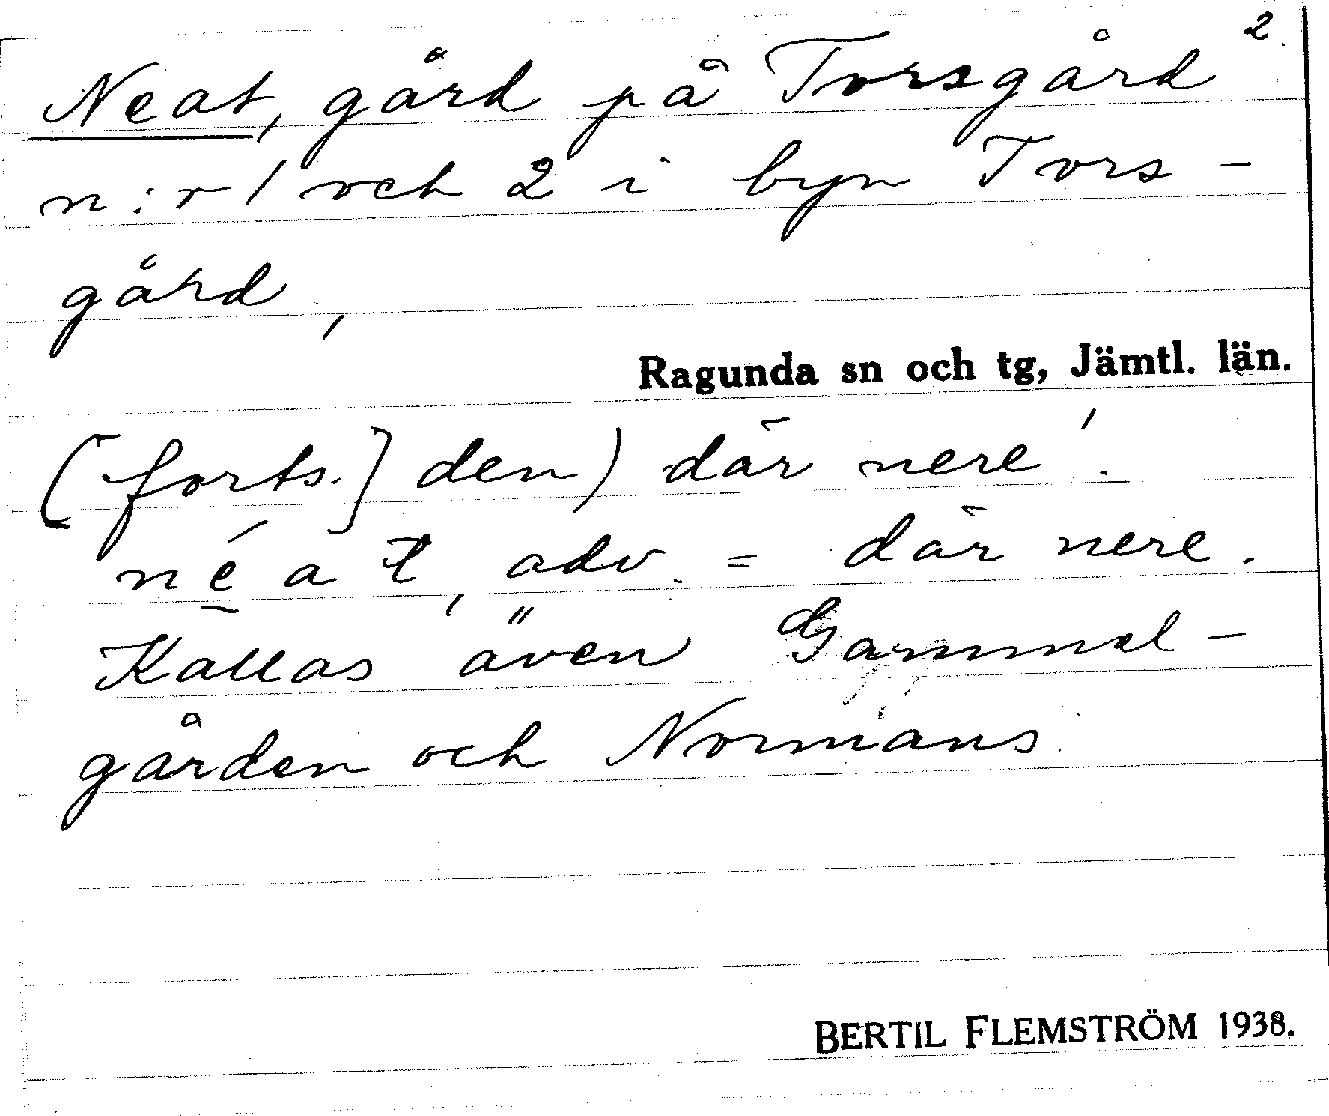 2
Neat, gård på Torsgård
n:r 1 och 2 i byn Tors-
gård,
Ragunda sn och tg, Jämtl. län.
[forts.] den) där nere'.
néat, adv. = där nere.
Kallas även Gammel-
gården och Normans.
BERTIL FLEMSTRÖM 1938.